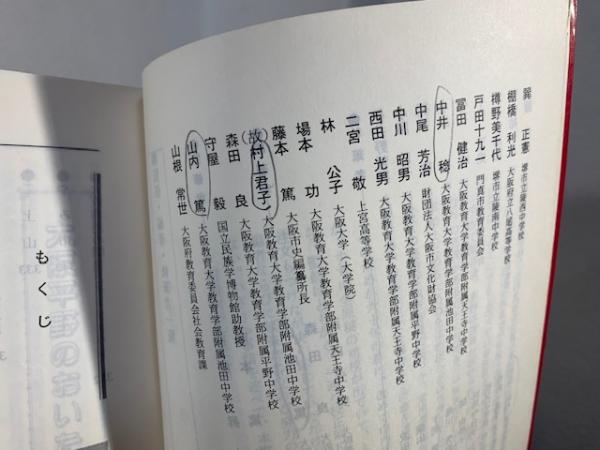 巽 正憲 堺市立陵西中学校
棚橋 利光 大阪府立八尾高等学校
樽野美千代 堺市立陵南中学校
戸田十九一 門真市教育委員会
冨田 健治 大阪教育大学教育学部附属天王寺中学校
中井 稔 大阪教育大学教育学部附属池田中学校
中尾 芳治 財団法人大阪市文化財協会
中川 昭男 大阪教育大学教育学部附属平野中学校
西田 光男 大阪教育大学教育学部附属天王寺中学校
二宮 敬 上宮高等学校
林 公子 大阪大学(大学院)
場本 功 大阪教育大学教育学部附属天王寺中学校
藤本 篤 大阪市史編纂所長
(故)村上君子 大阪教育大学教育学部附属池田中学校
森田 良 大阪教育大学教育学部附属平野中学校
守屋 毅 国立民族学博物館助教授
山内 篤 大阪教育大学教育学部附属池田中学校
山根 常世 大阪府教育委員会社会教育課
もくじ